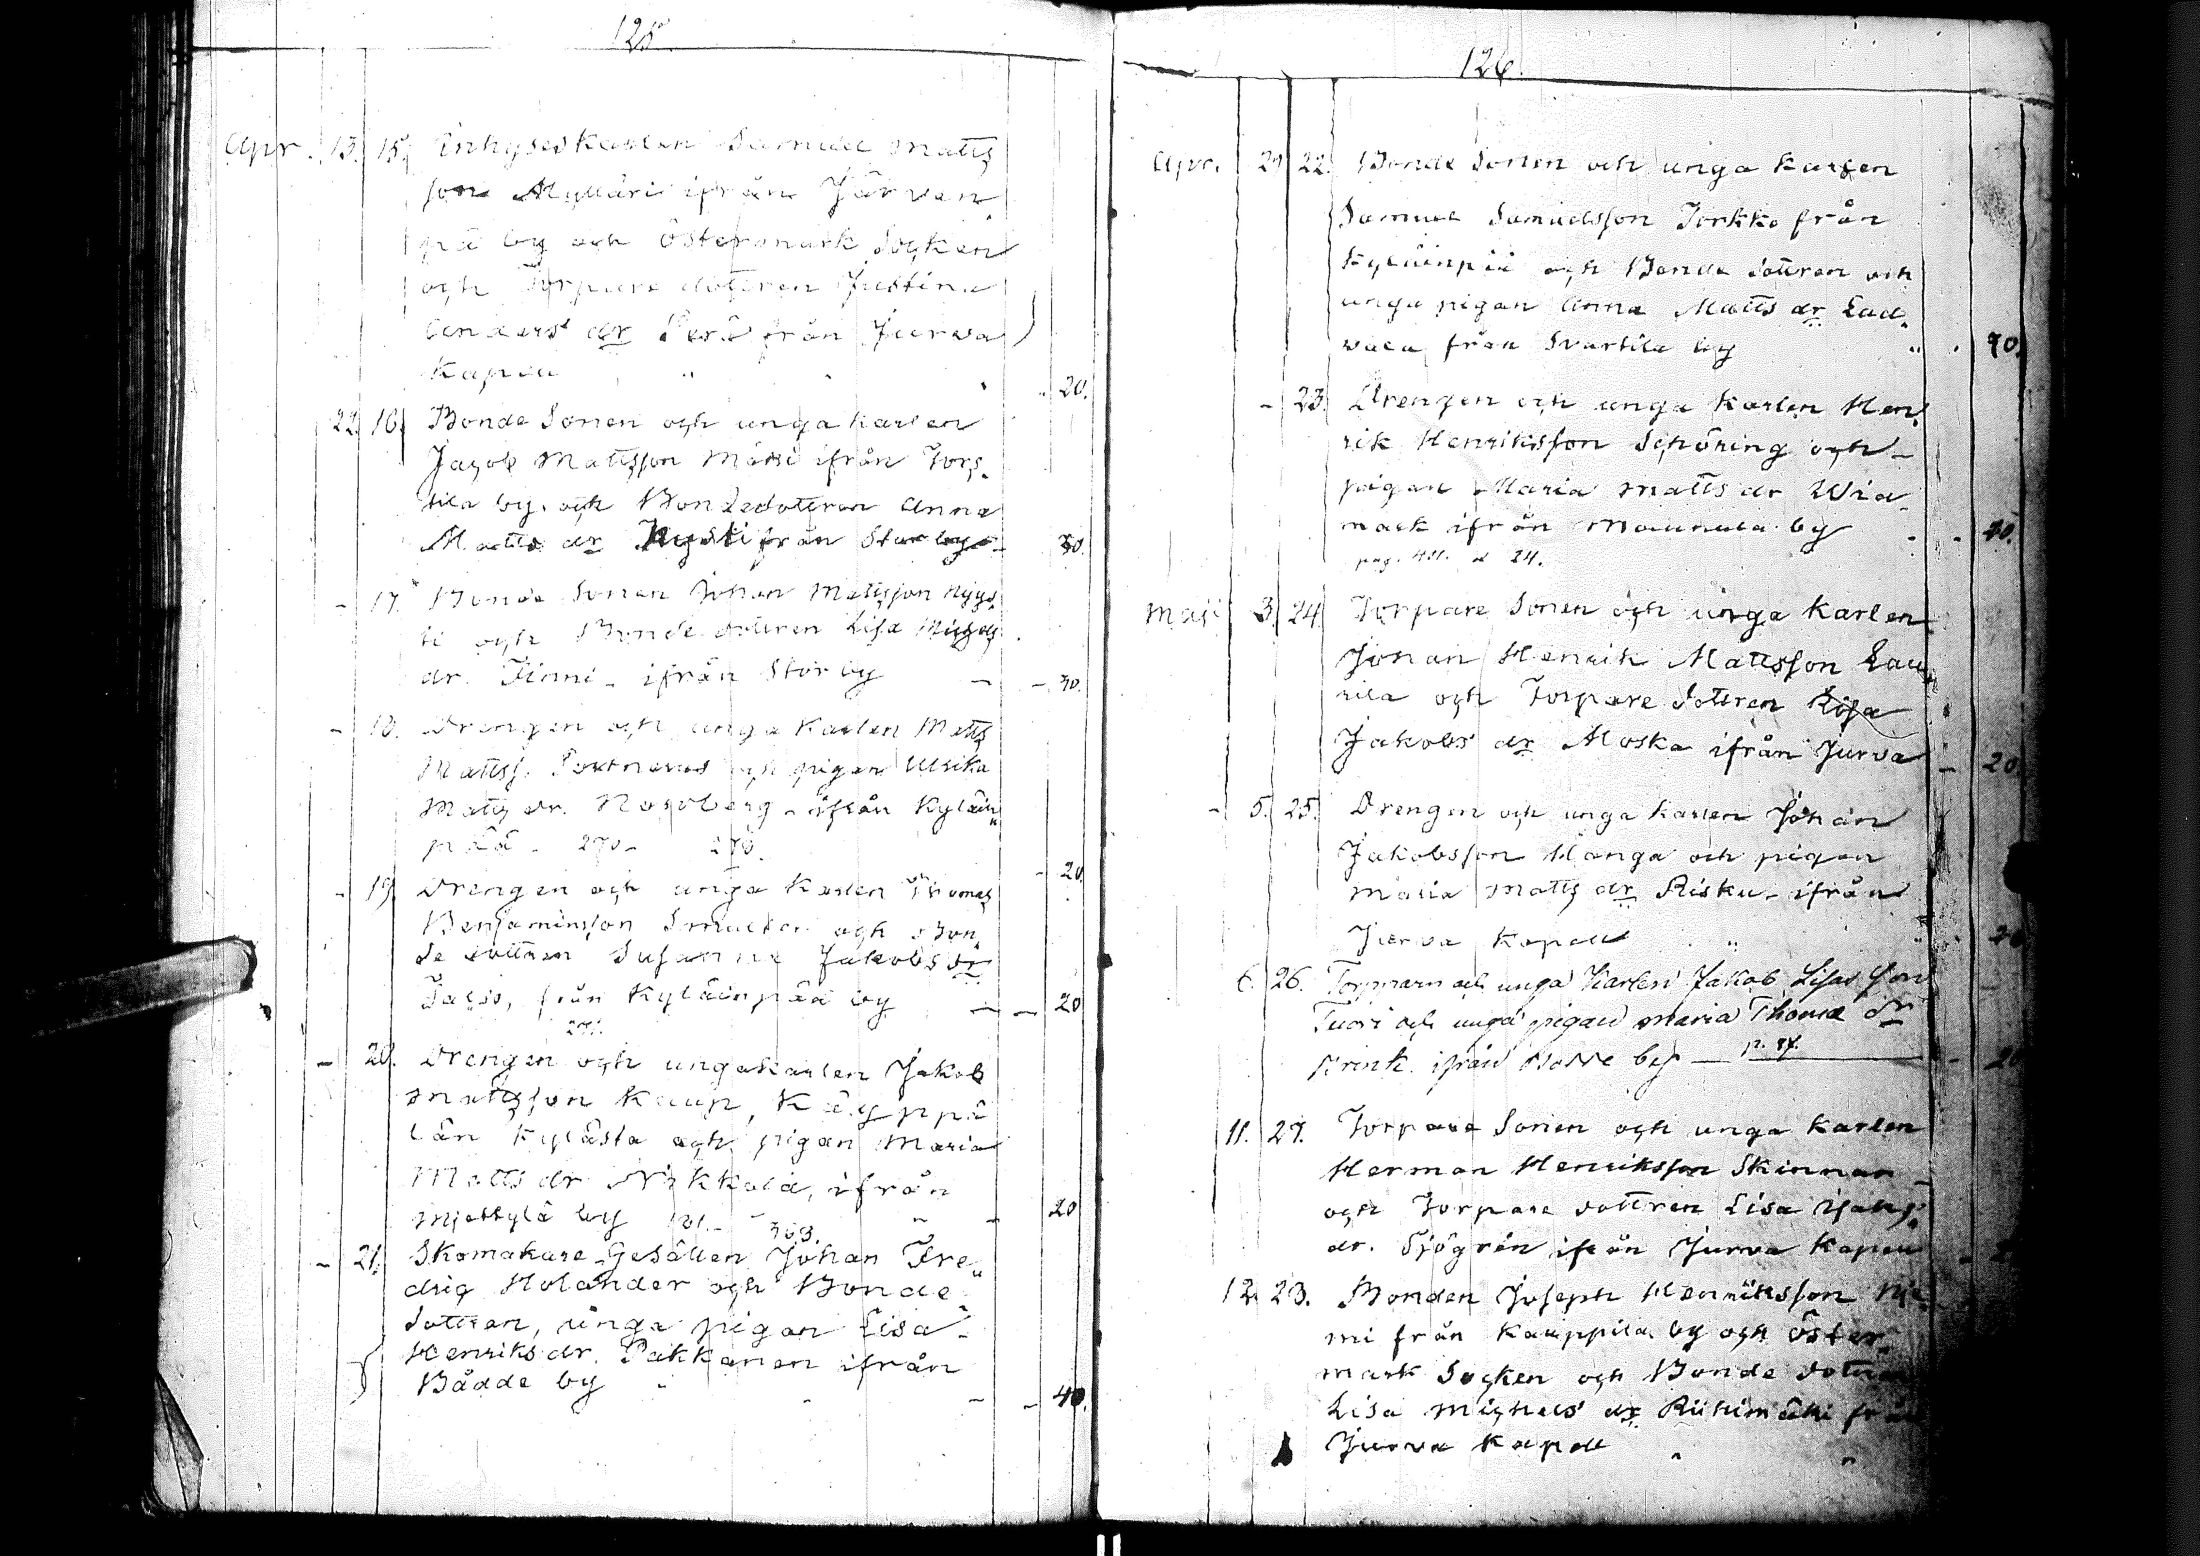 125.
Apr. 13. 15. Inhyseskarlen Samuel Matts
son Mylläri ifrån Järven
pä by och Östermark Socken
och Torpare dottren Justina
Anders dr Perä från Jurva
Kapell " 20.
22. 16. Bonde Sonen och unga karlen
Jacob Mattsson Mässi ifrån Tors-
tila by och Bondedottren Anna
Matts dr Nysti från Storby 30.
- 17. Bonde Sonen Johan Mattsson Nygs
ti och Bonde dottren Lisa
dr. Finni - ifrån Storby - - 30.
- 18. Drengen och unga Karlen Matts
Mattss. och pigan Ulrika
Matts dr. Nordberg - ifrån Kyläin„
pää - 270 - 270. - 20.
- 19. Drengen och unga Karlen Thomas
Benjaminsson Smulter och Bon„
de dottren Susanna Jakobs dr
från Kyläinpää by - - 20
271.
- 20. Drengen och unga karlen Jakob
Mattsson Kaup, Käyppä
län Kylästä och pigan Maria
Matts dr Nikkola, ifrån
Miettylä by 181. - 303. " - 20
- 21. Skomakare-Gesällen Johan Fre„
dric Holander och Bonde
dottren, unga pigan Lisa
Henriks dr. Pakkanen ifrån
Bådde by - - 40.
126.
Apr. 29 22. Bonde Sonen och unga karlen
Samuel Samuelsson Torkko från
Kyläinpää och Bonde dottren och
unga pigan Anna Matts dr Lad„
vala från Svartila by " 40.
- 23. Drengen och unga karlen Hen„
rik Henriksson Schöring och -
pigan Maria Matts dr Wid
mark ifrån Maunula by - 40.
pag. 411. 24.
Maji 3. 24. Torpare Sonen och unga karlen
Johan Henrik Mattsson Lau„
rila och Torpare dottren Lisa
Jakobs dr Moska ifrån Jurva - 20.
- 5. 25. Drengen och unga karlen Johan
Jakobsson Hånga och pigan
Maria Matts dr Risku - ifrån
Jurva Kapell " " 20
6. 26. Torparn och unga Karlen Jakob Lisas son
Tuori och unga pigan Maria Thomæ dr
Krink ifrån by — p. 87. - 20
11. 27. Torpare Sonen och unga karlen
Herman Henriksson Skinnar -
och Torpare dottren Lisa Isaks„
dr. Sjögrén ifrån Jurva Kapell - 2
12. 28. Bonden Joseph Henriksson Nie
mi från Kauppila by och Öster„
mark Socken och Bonde dottren
Lisa Michels dr Riihimäki från
Jurva Kapell " "